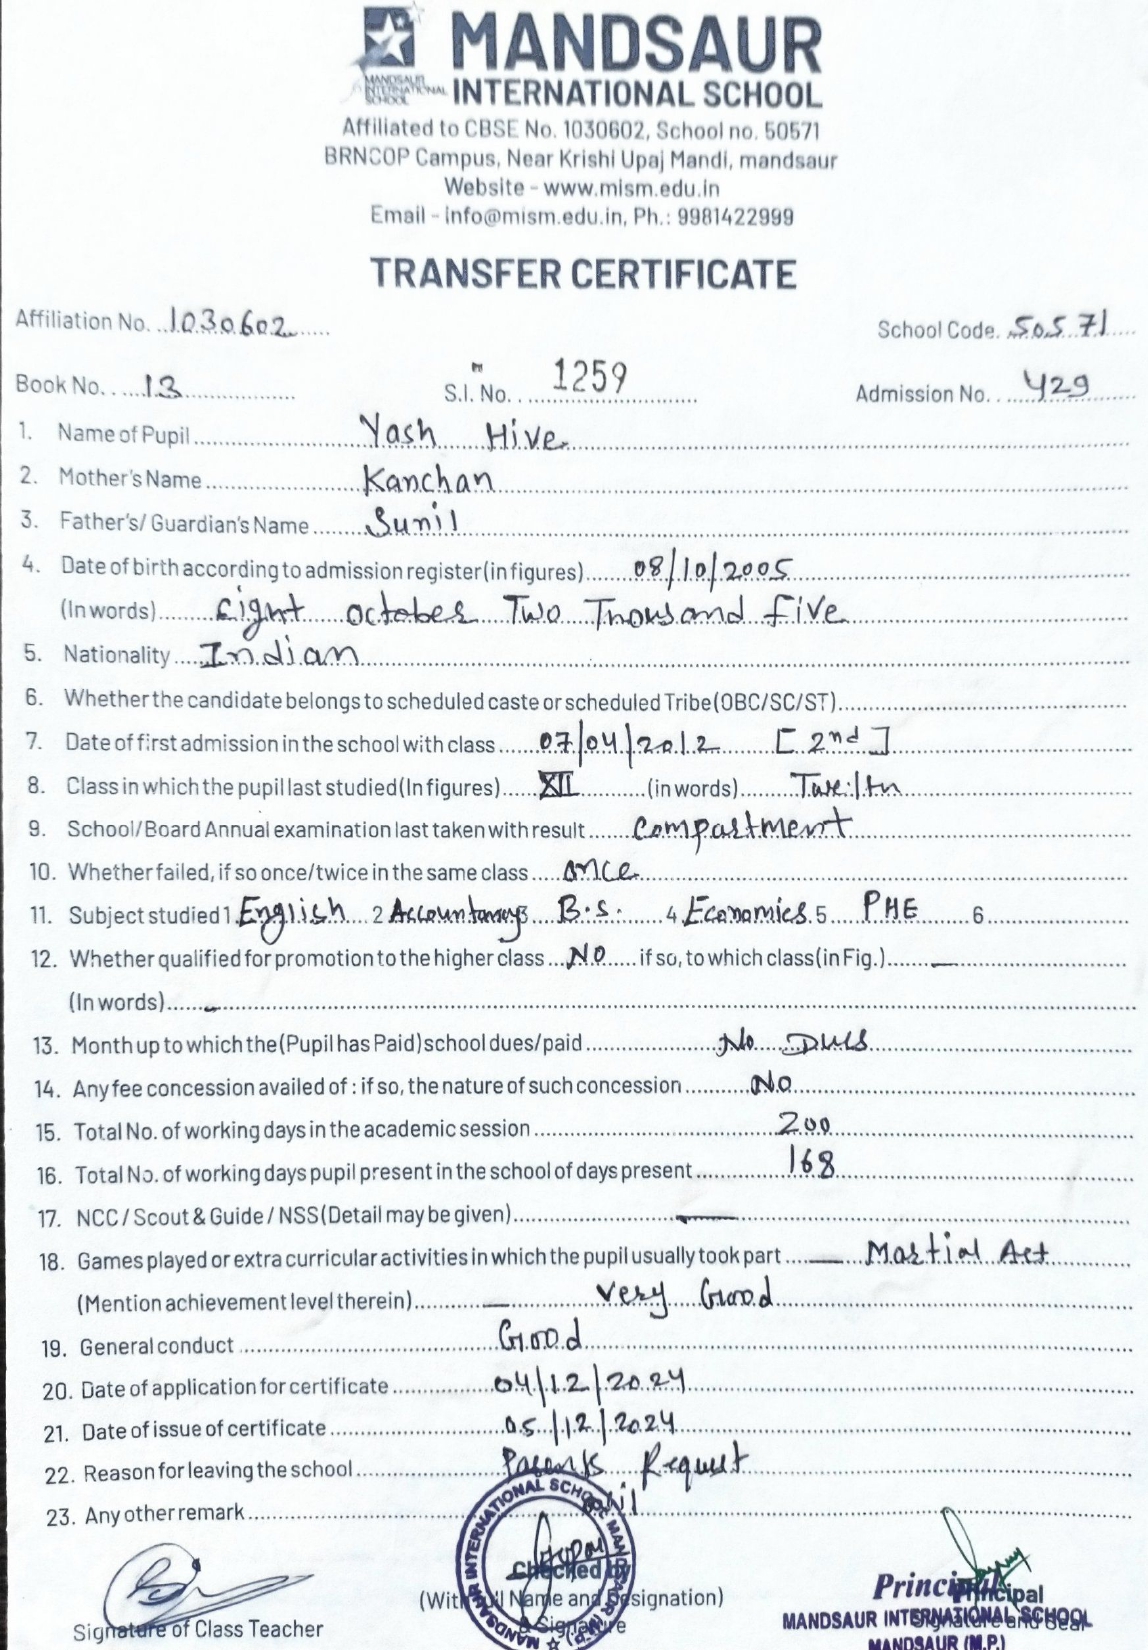 MANDSAUR
INTERNATIONAL SCHOOL
MANDSAUR
INTERNATIONAL
SCHOOL
Affiliated to CBSE No. 1030602, School no. 50571
BRNCOP Campus, Near Krishi Upaj Mandi, mandsaur
Website - www.mism.edu.in
Email - info@mism.edu.in, Ph.: 9981422999
TRANSFER CERTIFICATE
Affiliation No. 1030602 School Code. 50571
Book No. 13 S.I. No. 1259 Admission No. 429
1. Name of Pupil Yash Hive
2. Mother's Name Kanchan
3. Father's/ Guardian's Name Sunil
4. Date of birth according to admission register (in figures) 08/10/2005
(In words) Eight October Two Thousand five
5. Nationality Indian
6. Whether the candidate belongs to scheduled caste or scheduled Tribe (OBC/SC/ST)
7. Date of first admission in the school with class 07/04/2012 [2nd]
8. Class in which the pupil last studied (In figures) XII (in words) Twelth
9. School/Board Annual examination last taken with result Compartment
10. Whether failed, if so once/twice in the same class once
11. Subject studied 1 English 2 Accountancy 3 B.S. 4 Economics 5 PHE 6
12. Whether qualified for promotion to the higher class NO if so, to which class (in Fig.) —
(In words) -
13. Month up to which the (Pupil has Paid) school dues/paid No Dues
14. Any fee concession availed of : if so, the nature of such concession NO
15. Total No. of working days in the academic session 200
16. Total No. of working days pupil present in the school of days present 168
17. NCC / Scout & Guide / NSS (Detail may be given) —
18. Games played or extra curricular activities in which the pupil usually took part — Martial Art
(Mention achievement level therein) — Very Good
19. General conduct Good
20. Date of application for certificate 04/12/2024
21. Date of issue of certificate 05/12/2024
22. Reason for leaving the school Parents Request
23. Any other remark Nil
MANDSAUR INTERNATIONAL SCHOOL MANDSAUR (M.P.)
Signature of Class Teacher
Checked by
(With full Name and Designation)
& Signature
Principal
Principal
Signature and Seal
MANDSAUR INTERNATIONAL SCHOOL
MANDSAUR (M.P.)